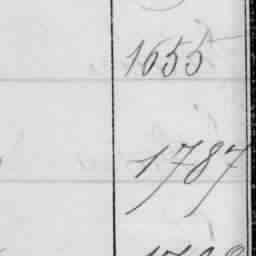 1655
1787